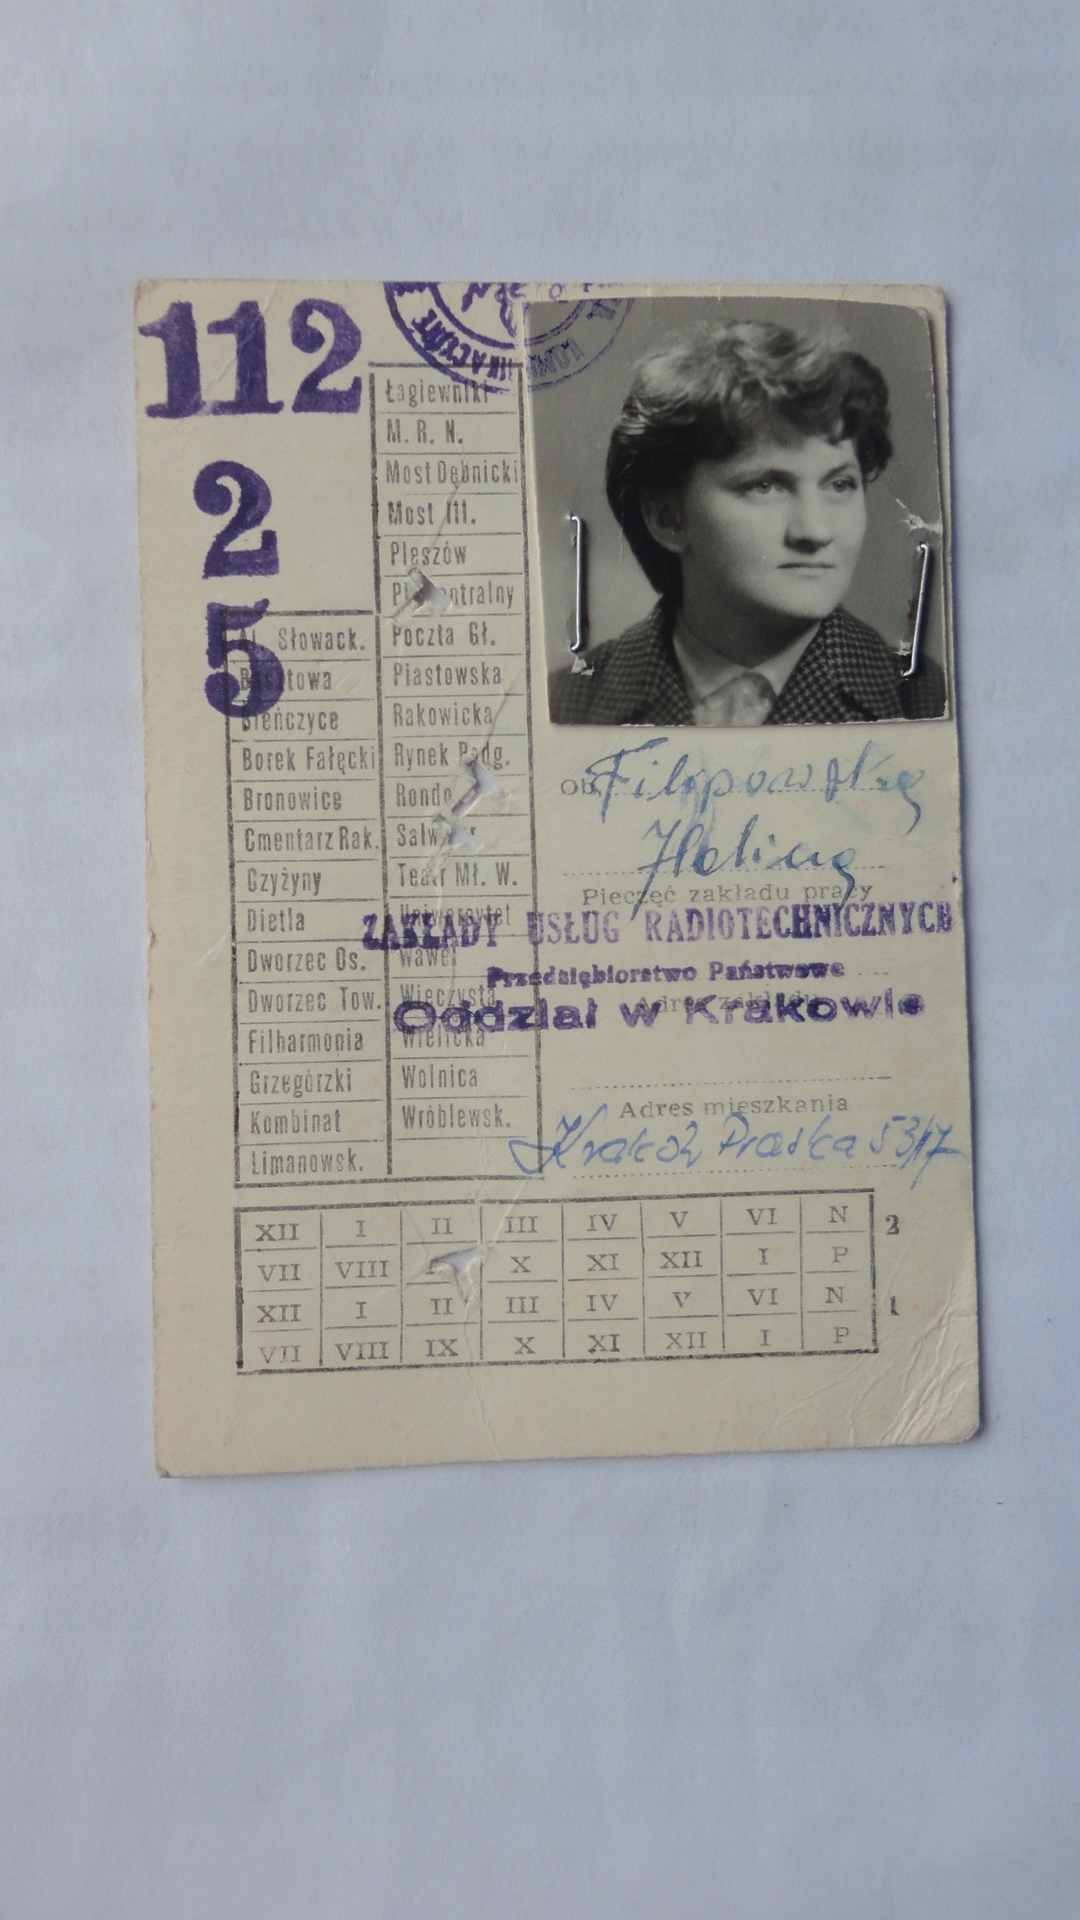 112
2
5
Łagiewniki
M. R. N.
Most Dębnicki
Most III.
Pleszów
Pl. Centralny
Poczta Gł.
Piastowska
Rakowicka
Rynek Podg.
Rondo
Salwator
Teatr Mł. W.
Uniwersytet
Wawel
Wieczysta
Wielicka
Wolnica
Wróblewsk.
Al. Słowack.
Basztowa
Bieńczyce
Borek Fałęcki
Bronowice
Cmentarz Rak.
Czyżyny
Dietla
Dworzec Os.
Dworzec Tow.
Filharmonia
Grzegórzki
Kombinat
Limanowsk.
Ob. Filipowska
Halina
Pieczęć zakładu pracy
ZAKŁADY USŁUG RADIOTECHNICZNYCH
Przedsiębiorstwo Państwowe
Adres zakładu
Oddział w Krakowie
Adres mieszkania
Kraków Praska 53/17
XII I II III IV V VI N 2
VII VIII X XI XII I P
XII I II III IV V VI N 1
VII VIII IX X XI XII I P